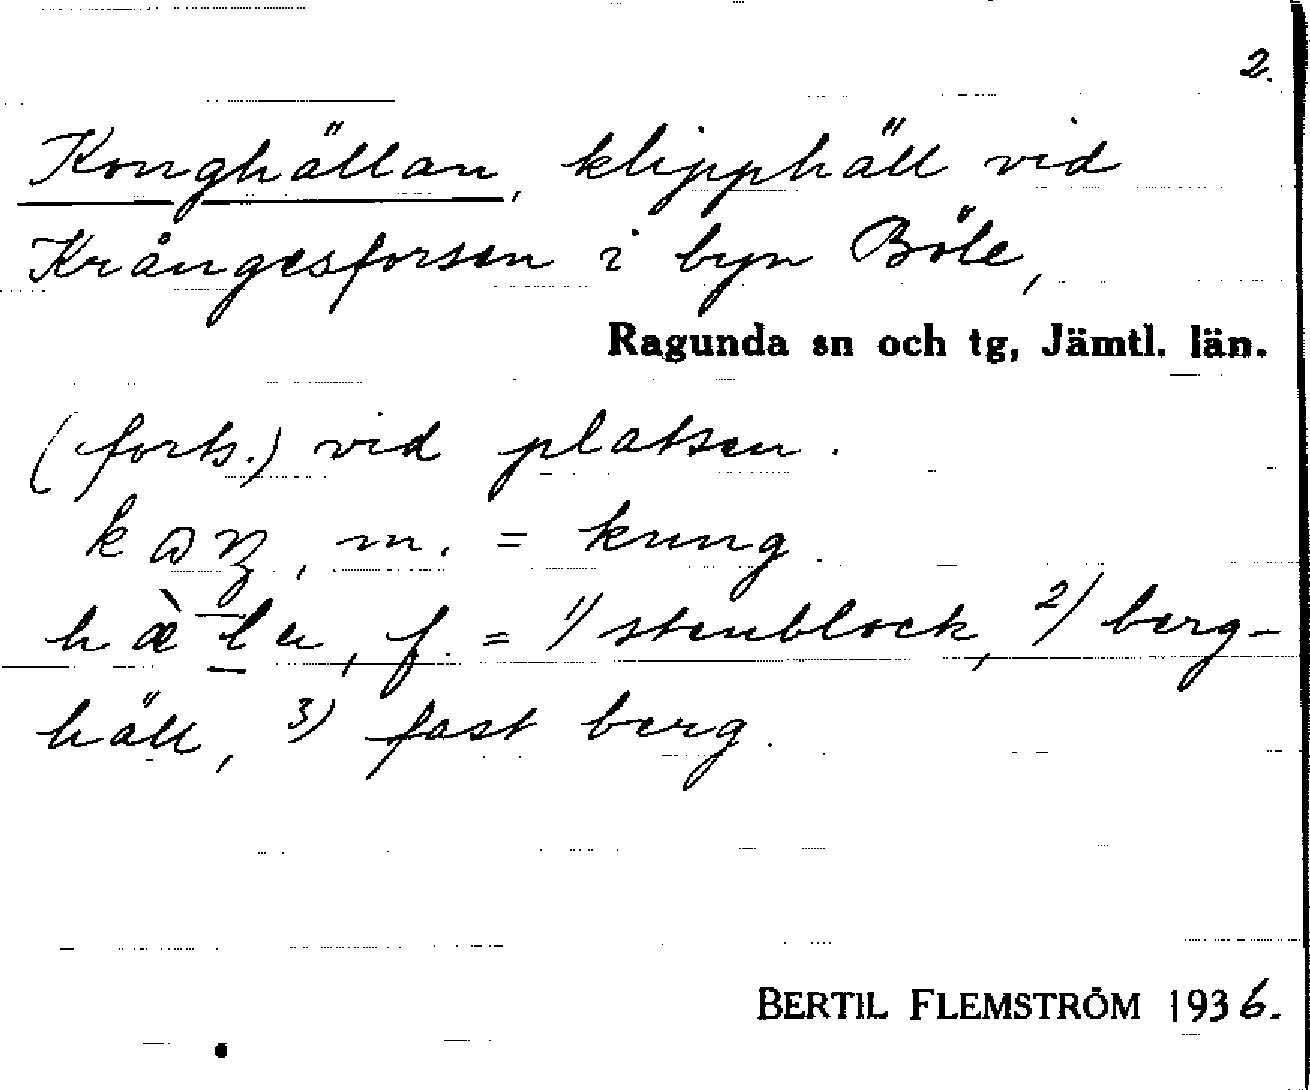 2.
Konghällan, klipphäll vid
Krångesforsen i byn Böle,
Ragunda sn och tg, Jämtl. län.
(forts.) vid platsen.
m. = kung.
f. = 1/ stenblock, 2/ berg-
häll, 3) fast berg.
BERTIL FLEMSTRÖM 1936.